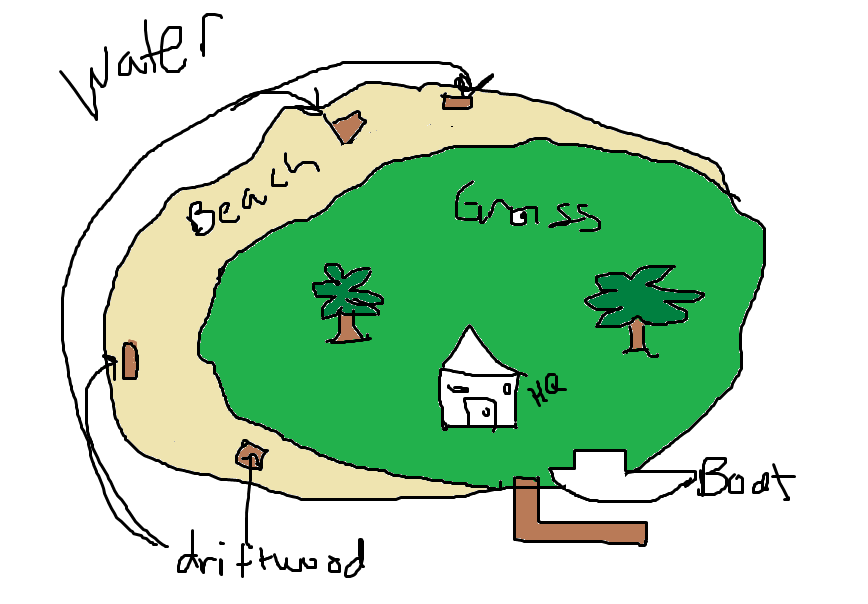 Water
Beach
Grass
HQ
Boat
driftwood